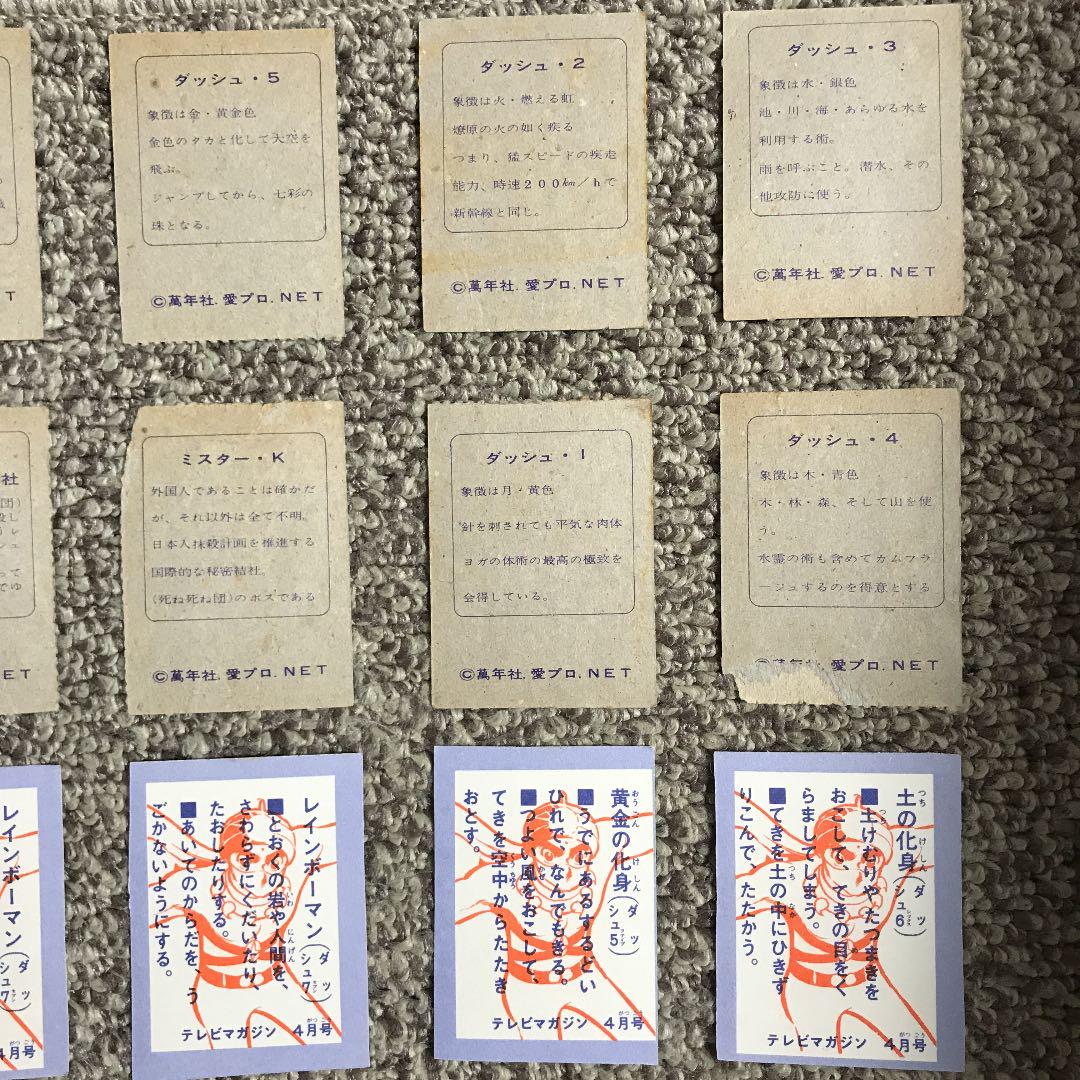 ダッシュ・5
象徴は金・黄金色
金色のタカと化して大空を
飛ぶ。
ジャンプしてから、七彩の
珠となる。
©萬年社.愛プロ.NET
ダッシュ・2
象徴は火・燃える虹
燎原の火の如く疾る
つまり、猛スピードの疾走
能力、時速200km/hで
新幹線と同じ。
©萬年社.愛プロ.NET
ダッシュ・3
象徴は水・銀色
池・川・海・あらゆる水を
利用する術。
雨を呼ぶこと。潜水、その
他攻防に使う。
©萬年社.愛プロ.NET
T
社
団)
ET
ミスター・K
外国人であることは確かだ
が、それ以外は全て不明。
日本人抹殺計画を推進する
国際的な秘密結社。
(死ね死ね団)のボスである
©萬年社.愛プロ.NET
ダッシュ・1
象徴は月・黄色
針を刺されても平気な肉体
ヨガの体術の最高の極致を
会得している。
©萬年社.愛プロ.NET
ダッシュ・4
象徴は木・青色
木・林・森、そして山を使
う。
水霊の術も含めてカムフラ
ージュするのを得意とする
©萬年社.愛プロ.NET
レインボーマン(ダッシュ7)
4月号
レインボーマン(ダッシュ7)
■とおくの岩や人間を、
さわらずにくだいたり、
たおしたりする。
■あいてのからだを、う
ごかないようにする。
テレビマガジン 4月号
黄金の化身(ダッシュ5)
■うでにあるするどい
ひれで、なんでもきる。
■つよい風をおこして、
てきを空中からたたき
おとす。
テレビマガジン 4月号
土の化身(ダッシュ6)
■土けむりやたつまきを
おこして、てきの目をく
らましてしまう。
■てきを土の中にひきず
りこんで、たたかう。
テレビマガジン 4月号